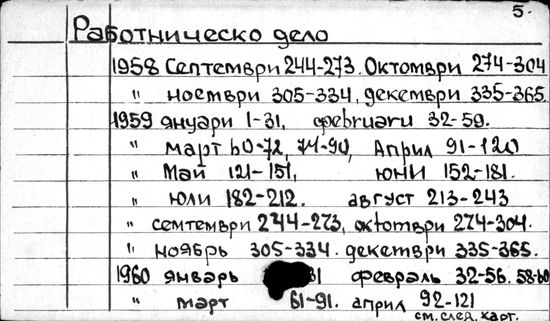 5.
Работническо дело
1958 Септември 244-273. Октомври 274-304
" ноември 305-334, декември 335-365.
1959 януари 1-31, февruari 32-59.
" март 60-72, 74-90, Април 91-120
" Май 121-151, юни 152-181.
" юли 182-212. август 213-243
" септември 244-273, октомври 274-304.
" ноябрь 305-334. декември 335-365.
1960 январь 31 февраль 32-56. 58-60
" март 61-91. април 92-121
см. след. карт.